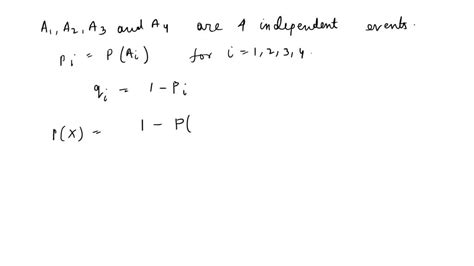 A₁, A₂, A₃ and A₄ are 4 independent events.
pᵢ = P(Aᵢ) for i = 1, 2, 3, 4.
qᵢ = 1 - pᵢ
P(X) = 1 - P(